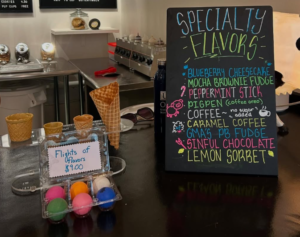 SPECIALTY
FLAVORS
BLUEBERRY CHEESECAKE
MOCHA BROWNIE FUDGE
PEPPERMINT STICK
PIGPEN (Coffee oreo)
COFFEE - no sugar added
CARAMEL COFFEE
GMA'S PB FUDGE
SINFUL CHOCOLATE
LEMON SORBET
Flights of
flavors
$9.00